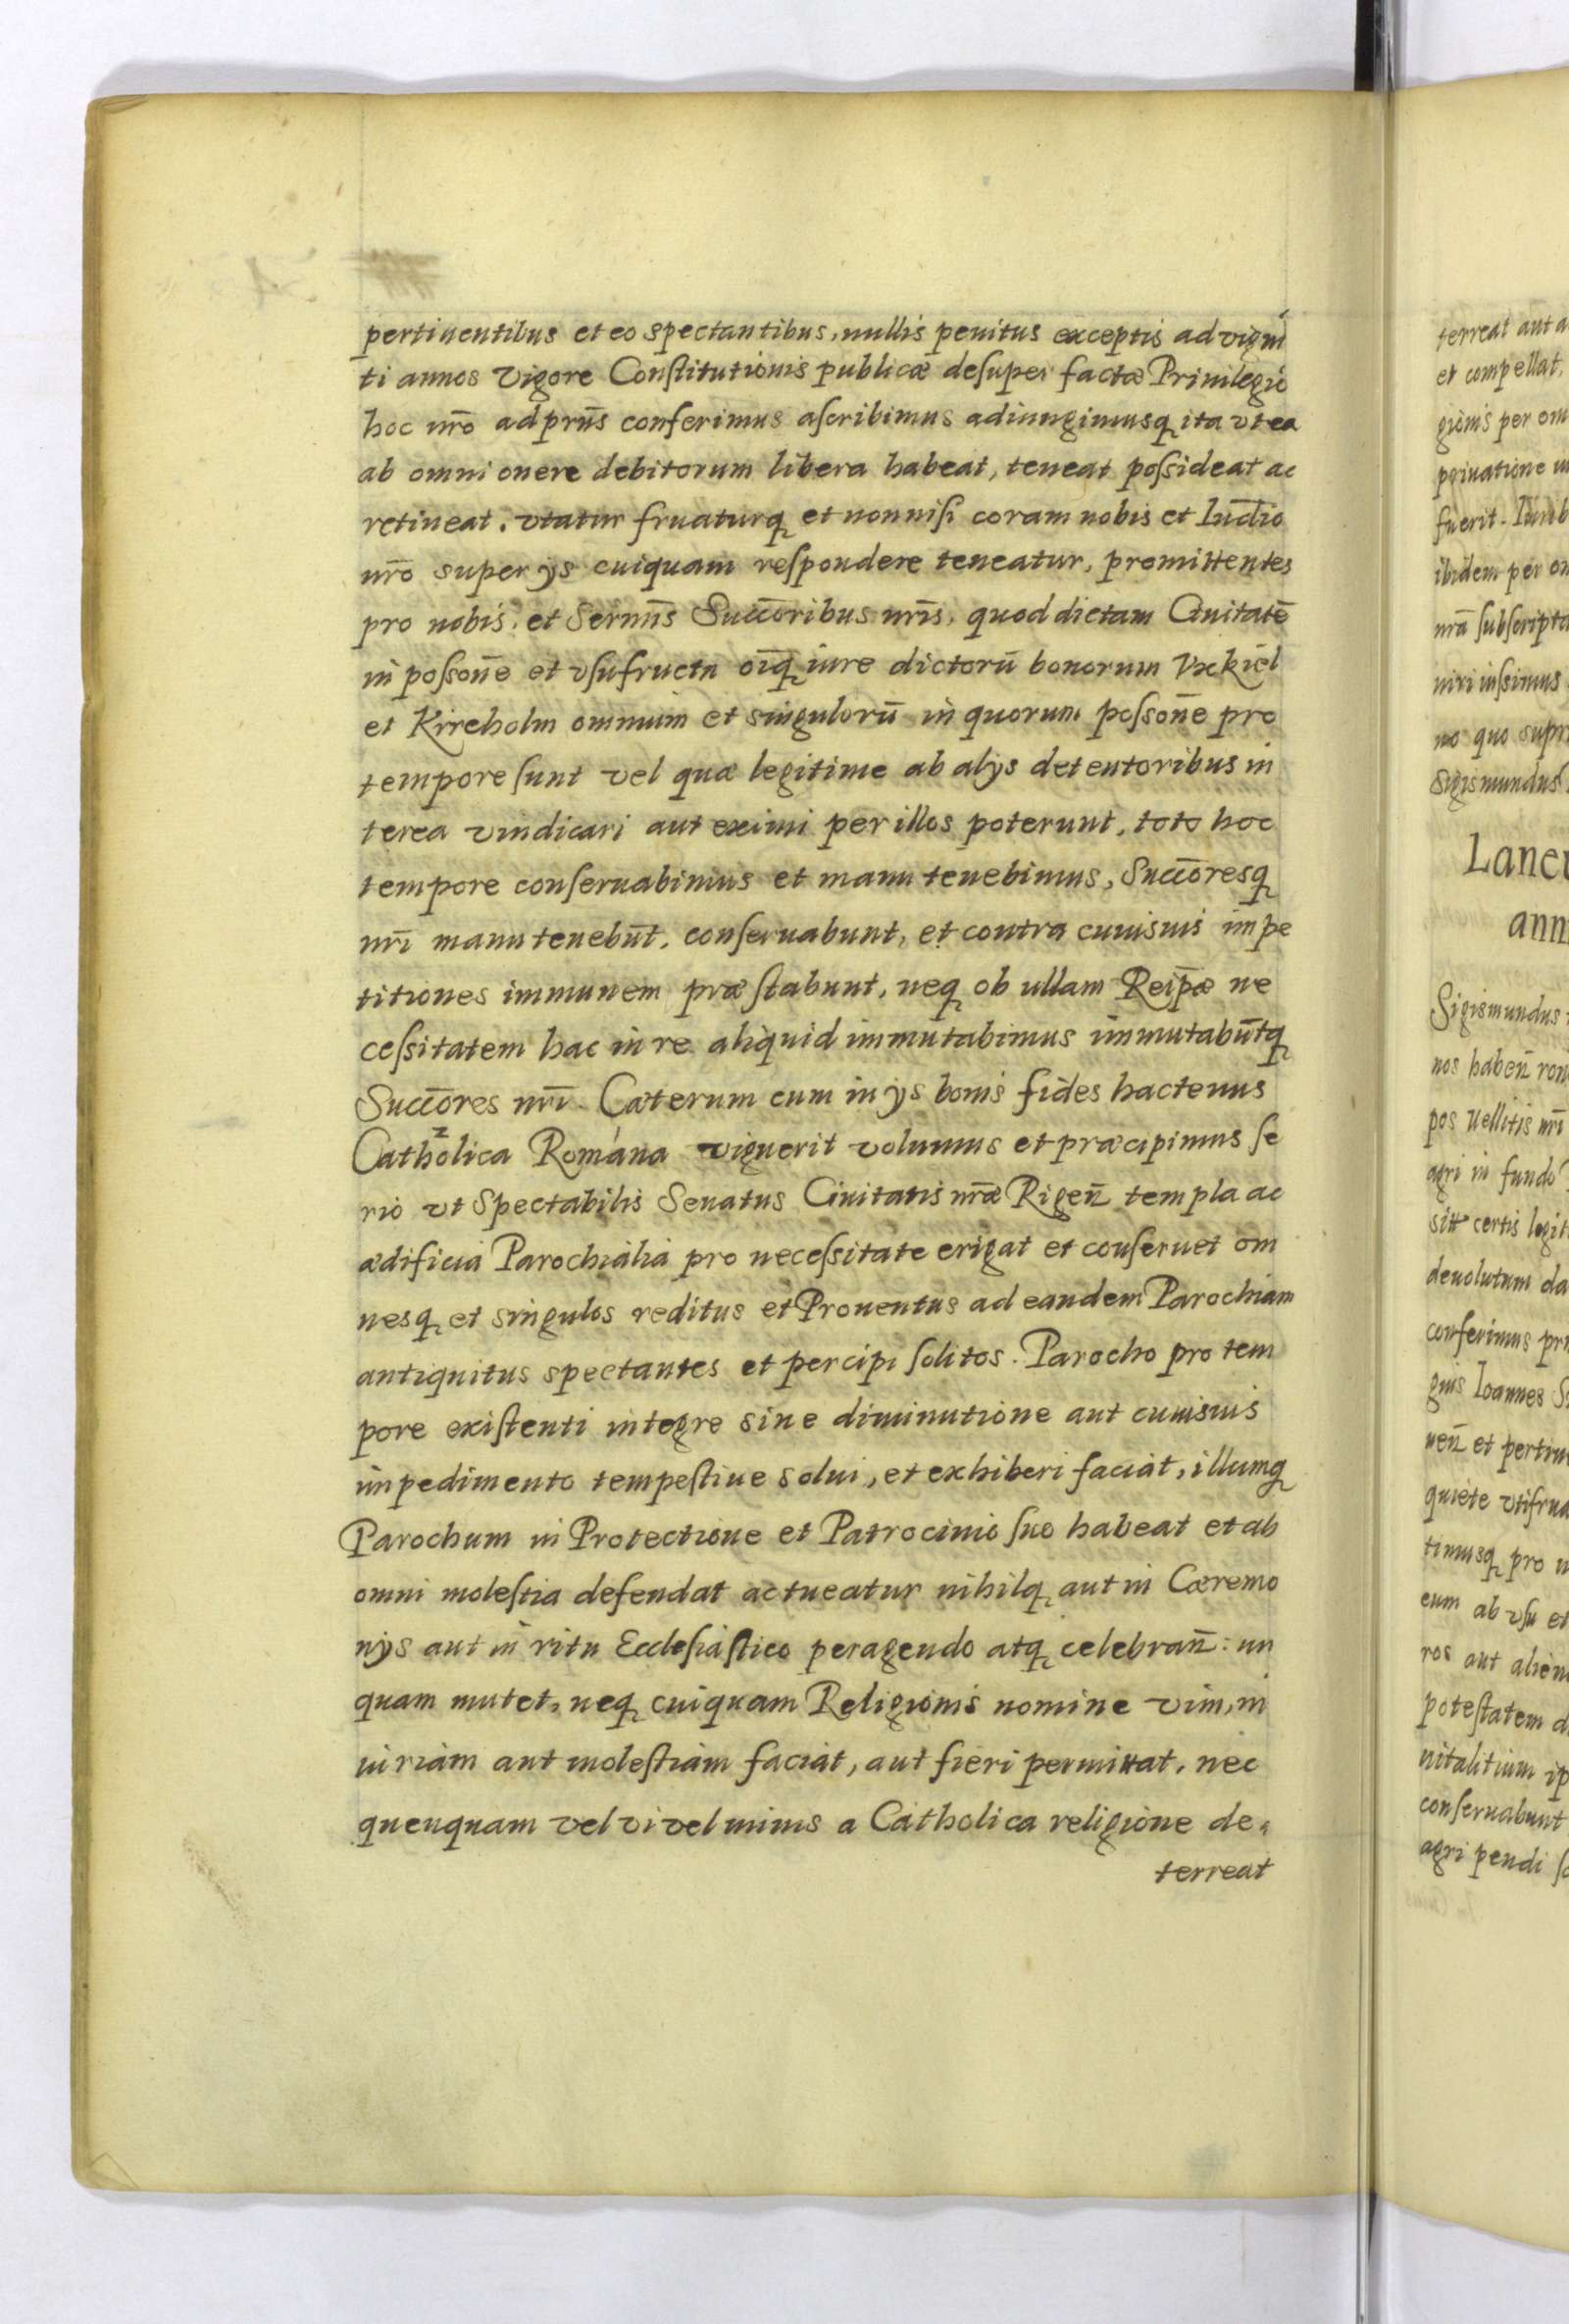 pertinentibus et eo spectantibus, nullis penitus exceptis ad vigin
ti annos vigore Constitutionis publicæ desuper factæ Priuilegio
hoc nr̃o ad pr̃ns conferimus ascribimus adiungimusq ita vt ea
ab omni onere debitorum libera habeat, teneat possideat ac
retineat. vtatur fruaturq et nonnisi coram nobis et Iud̃io
nr̃o super ijs cuiquam respondere teneatur, promittentes
pro nobis. et Serm̃is Succ̃oribus nr̃is, quod dictam Ciuitatẽ
in posson̄e et vsufructu oĩq iure dictorũ bonorum Vxkiel
et Kircholm omnium et singulorũ in quorum posson̄e pro
tempore sunt vel quæ legitime ab alijs detentoribus in
terea vindicari aut eximi per illos poterunt, toto hoc
tempore conseruabimus et manu tenebimus, Succ̃oresq
nr̃i manu tenebũt, conseruabunt, et contra cuiusuis impe
titiones immunem præstabunt, neq ob ullam Reip̃æ ne
cessitatem hac in re aliquid immutabimus immutabũtq
Succ̃ores nr̃i. Cæterum cum in ijs bonis fides hactenus
Catholica Romana viguerit volumus et præcipimus se
rio vt Spectabilis Senatus Ciuitatis nr̃æ Rigen̄ templa ac
ædificia Parochialia pro necessitate erigat et conseruet om
nesq et singulos reditus et Prouentus ad eandem Parochiam
antiquitus spectantes et percipi solitos. Parocho pro tem
pore existenti integre sine diminutione aut cuiusuis
impedimento tempestiue solui, et exhiberi faciat, illumq
Parochum in Protectione et Patrocinio suo habeat et ab
omni molestia defendat ac tueatur nihilq aut in Cæremo
nijs aut in ritu Ecclesiastico peragendo atq celebran̄: un
quam mutet, neq cuiquam Religionis nomine vim, in
iuriam aut molestiam faciat, aut fieri permittat, nec
quenquam vel vi vel minis a Catholica religione de
terreat
terreat aut a
et compellat,
gionis per om
priuatione
fuerit.
ibidem per
nr̃a subscripta
niri iussimus
no quo supr
Sigismundus
Lanc
ann
Sigismundus
nos haben̄
pos Vellitis nr̃i
agri in fundo
sitt certis legit
deuolutum da
conferimus
Ioannes
et pertin
quiete vtifrua
timusq pro
eum ab vsu et
ros aut alien
potestatem d
nitalitium ip
conseruabunt
agri pendi